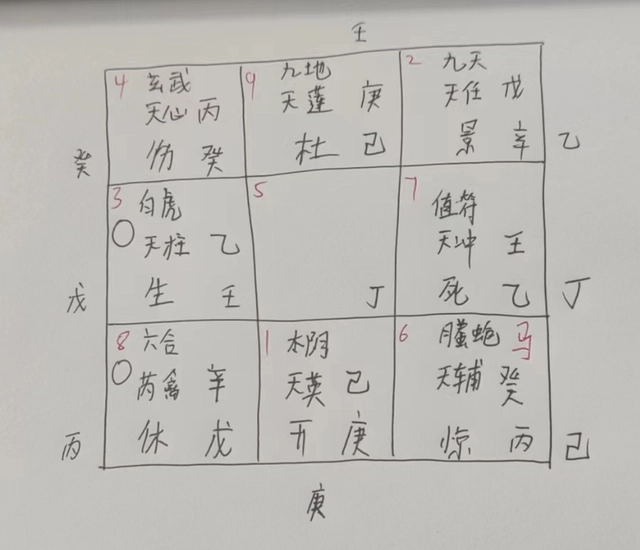 壬
4 玄武
天心 丙
伤 癸
9 九地
天蓬 庚
杜 己
2 九天
天任 戊
景 辛
癸
乙
3 白虎
天柱 乙
生 壬
5
丁
7 值符
天冲 壬
死 乙
戊
丁
8 六合
芮禽 辛
休 戊
1 太阴
天英 己
开 庚
6 螣蛇 马
天辅 癸
惊 丙
丙
己
庚